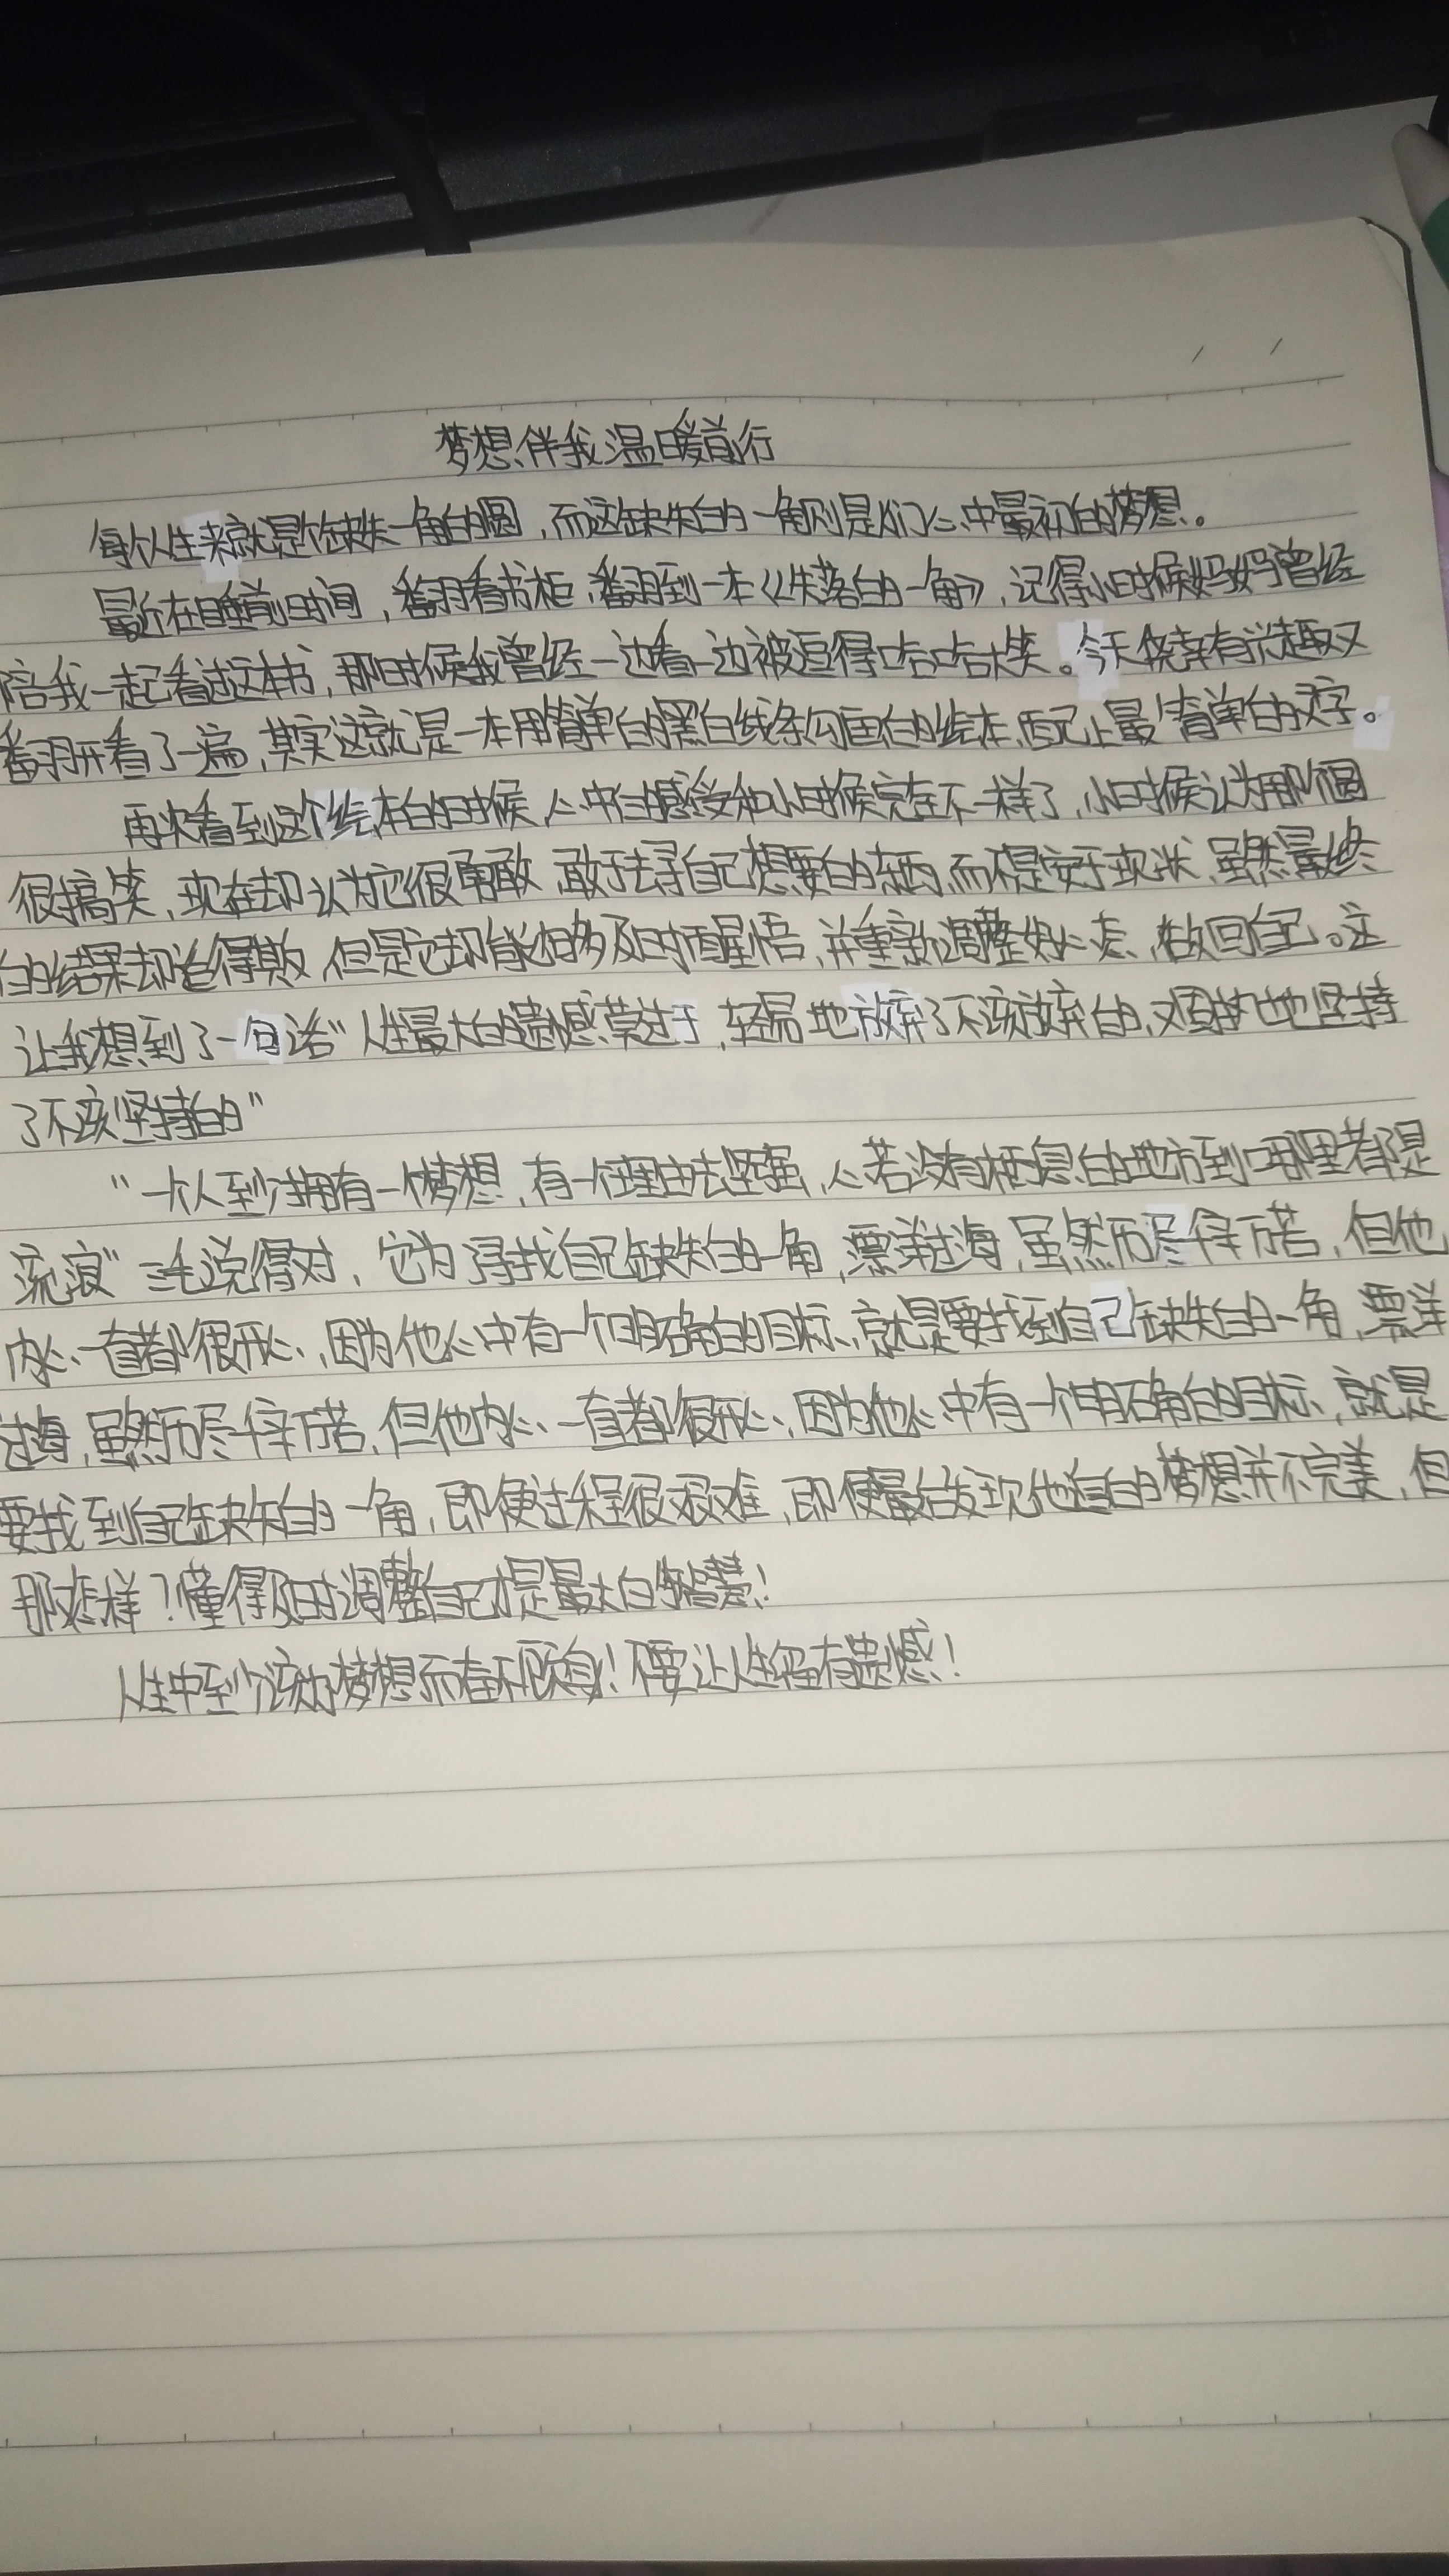 梦想伴我温暖前行
每个人生来就是个缺失一角的圆，而这缺失的一角则是人们心中最初的梦想。
最近在睡前时间，翻看书柜，翻到一本《失落的一角》，记得小时候妈妈曾经
陪我一起看过这本书，那时候我曾经一边看一边被逗得哈哈大笑。今天饶有兴趣又
翻开看了一遍，其实这就是一本用简单的黑白线条勾画的绘本，配上最简单的文字。
再次看到这个绘本的时候，心中的感受和小时候完全不一样了，小时候认为那个圆
很搞笑，现在却认为它很勇敢，敢于去寻自己想要的东西，而不是安于现状，虽然最终
的结果却追得失败，但是它却能够及时醒悟，并重新调整好心态，做回自己。这
让我想到了一句话“人生最大的遗憾莫过于，轻易地放弃了不该放弃的，又固执地坚持
了不该坚持的”
“一个人至少拥有一个梦想，有一个理由去坚强，心若没有栖息的地方到哪里都是
流浪”三毛说得对，它为了寻找自己缺失的一角，漂洋过海，虽然历尽千辛万苦，但他
内心一直都很开心，因为他心中有一个明确的目标，就是要找到自己缺失的一角，漂洋
过海，虽然历尽千辛万苦，但他内心一直都很开心，因为他心中有一个明确的目标，就是
要找到自己缺失的一角，即便过程很艰难，即便最后发现他追的梦想并不完美，但
那怎样？懂得及时调整自己才是最大的智慧！
人生中至少该为梦想而奋不顾身！不要让人生留有遗憾！